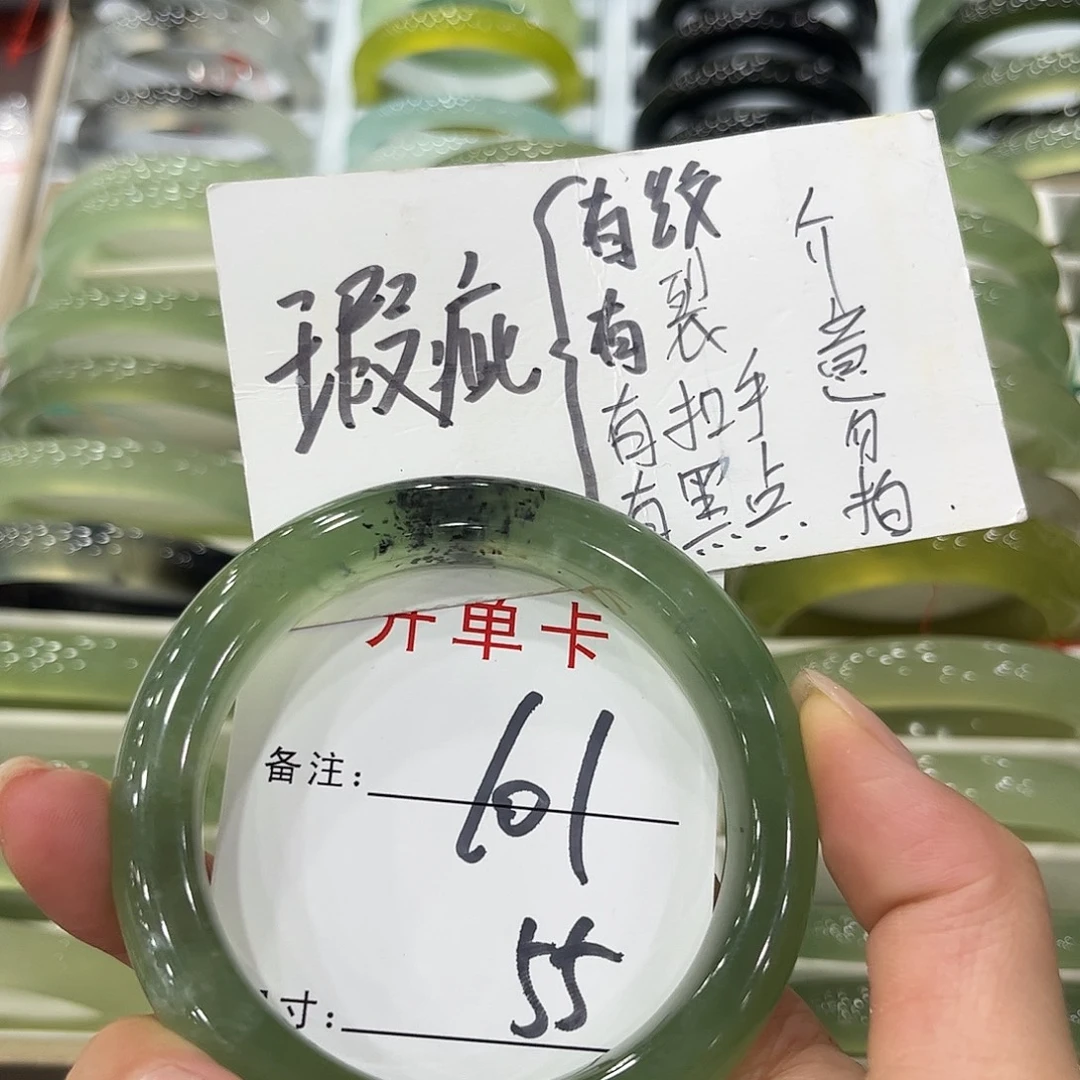 瑕疵
有纹
有裂
有扣手
有黑点.
介意勿拍.
开单卡
备注: 101
寸: 55